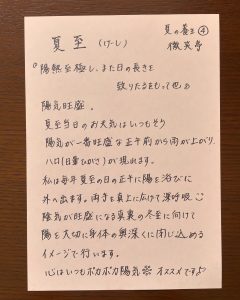 夏の養生④
微笑亭
夏至(げし)
"陽熱至極し、また日の長きを
致りたるをもって也"
陽気旺盛。
夏至当日のお天気はいつもそう
陽気が一番旺盛な正午前から雨が上がり
ハロ(日暈ひがさ)が現れます。
私は毎年夏至の日の正午に陽を浴びに
外へ出ます。両手を真上に広げて深呼吸
陰気が旺盛になる真裏の冬至に向けて
陽を大切に身体の奥深くに閉じ込める
イメージで行います。
心はいつもポカポカ陽気 オススメです